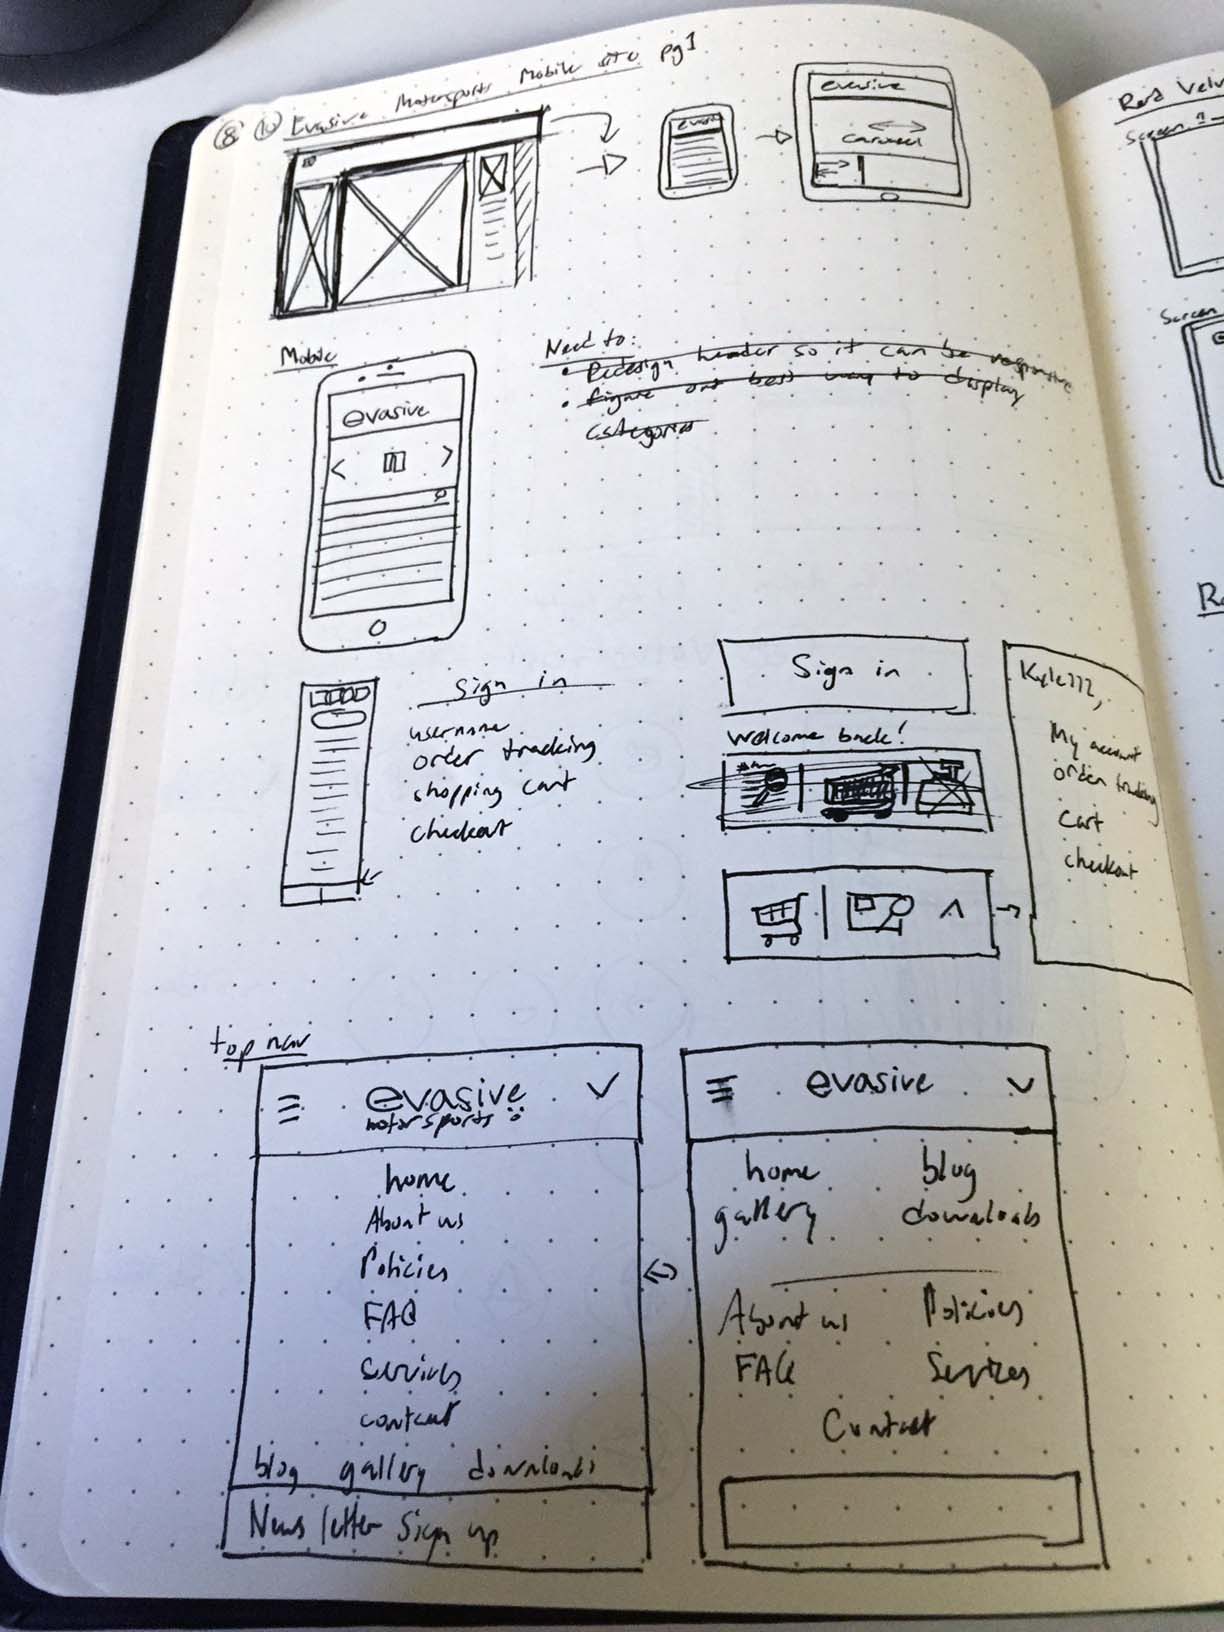 8 10 Evasive Motorsports Mobile site pg 1
evasive
carousel
Mobile
evasive
Need to:
• Redesign header so it can be responsive
• figure out best way to display
categories
Sign in
username
order tracking
shopping cart
checkout
Sign in
Welcome back!
Kylezzz,
My account
order tracking
cart
checkout
top nav
evasive
motorsports
home
About us
Policies
FAQ
services
contact
blog gallery downloads
Newsletter Sign up
evasive
home blog
gallery downloads
About us Policies
FAQ Services
Contact
Screen
Screen